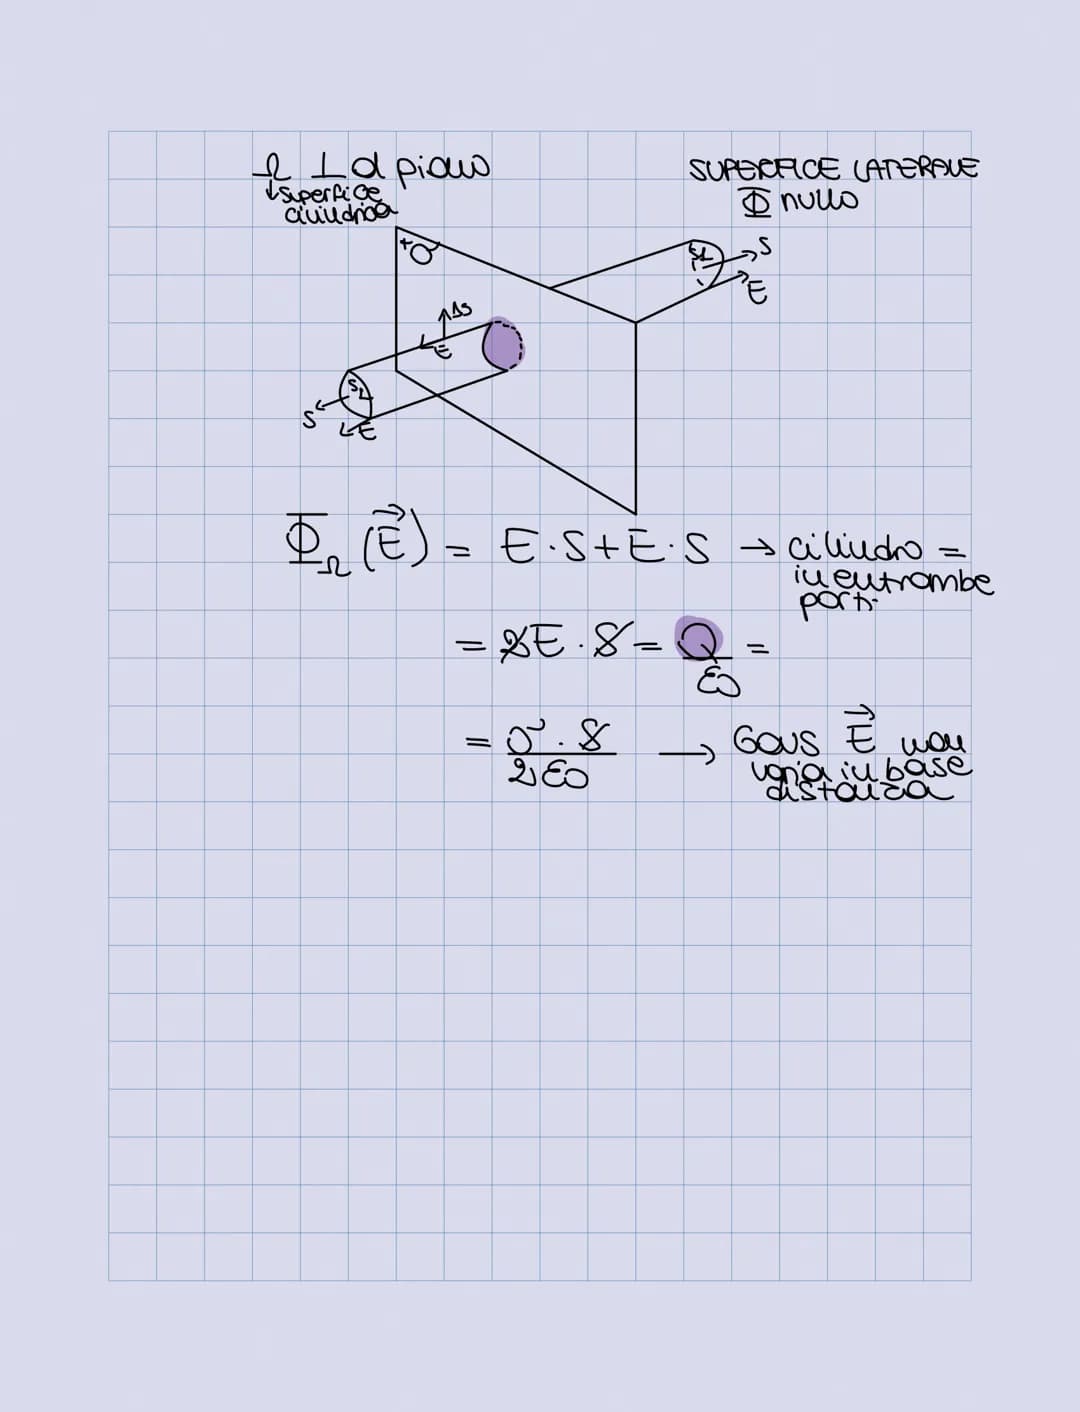 Ω ⊥ al piano
↓ superficie
cilindrica
SUPERFICE LATERALE
Φ nullo
+σ
ΔS
E
S⊥
S
E
S⊥
S
E
Φ_Ω (E⃗) = E·S + E·S → cilindro =
in entrambe
parti
= 2E·S = Q/ε0 =
= σ·S/2ε0 → Gaus E⃗ non
varia in base
distanza